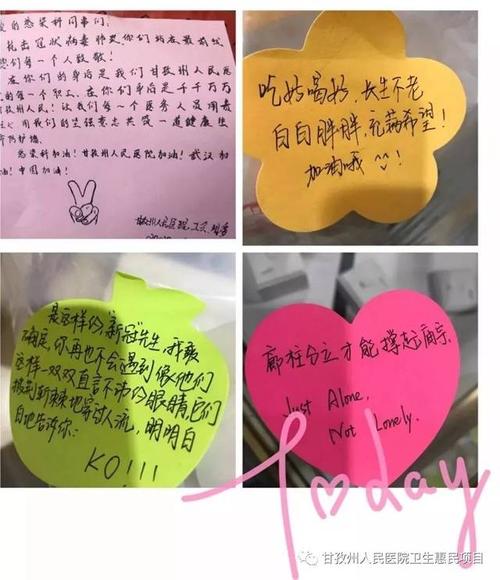 的感染科同事们:
抗击冠状病毒肺炎,你们站在最前线
你们每一个人致敬!
在你们的身后是我们甘孜州人民医
的每一个职工,在你们身后是千千万万
孜州人民!让我们每一个医务人员用最
用我们的坚强意志共筑一道健康生
防护墙
感染科加油!甘孜州人民医院加油!武汉加
油!中国加油!
甘孜州人民医院工会
吃好喝好,长生不老
白白胖胖,充满希望!
加油哦 !
是这样的"新冠"先生,我敢
确定,你再也不会遇到像他们
这样一双双直言不讳的眼睛它们
披荆斩棘也穿过人流,明明白
白地告诉你:
KO!!!
廊柱分立才能撑起庙宇
Just Alone,
Not Lonely.
Today
甘孜州人民医院卫生惠民项目